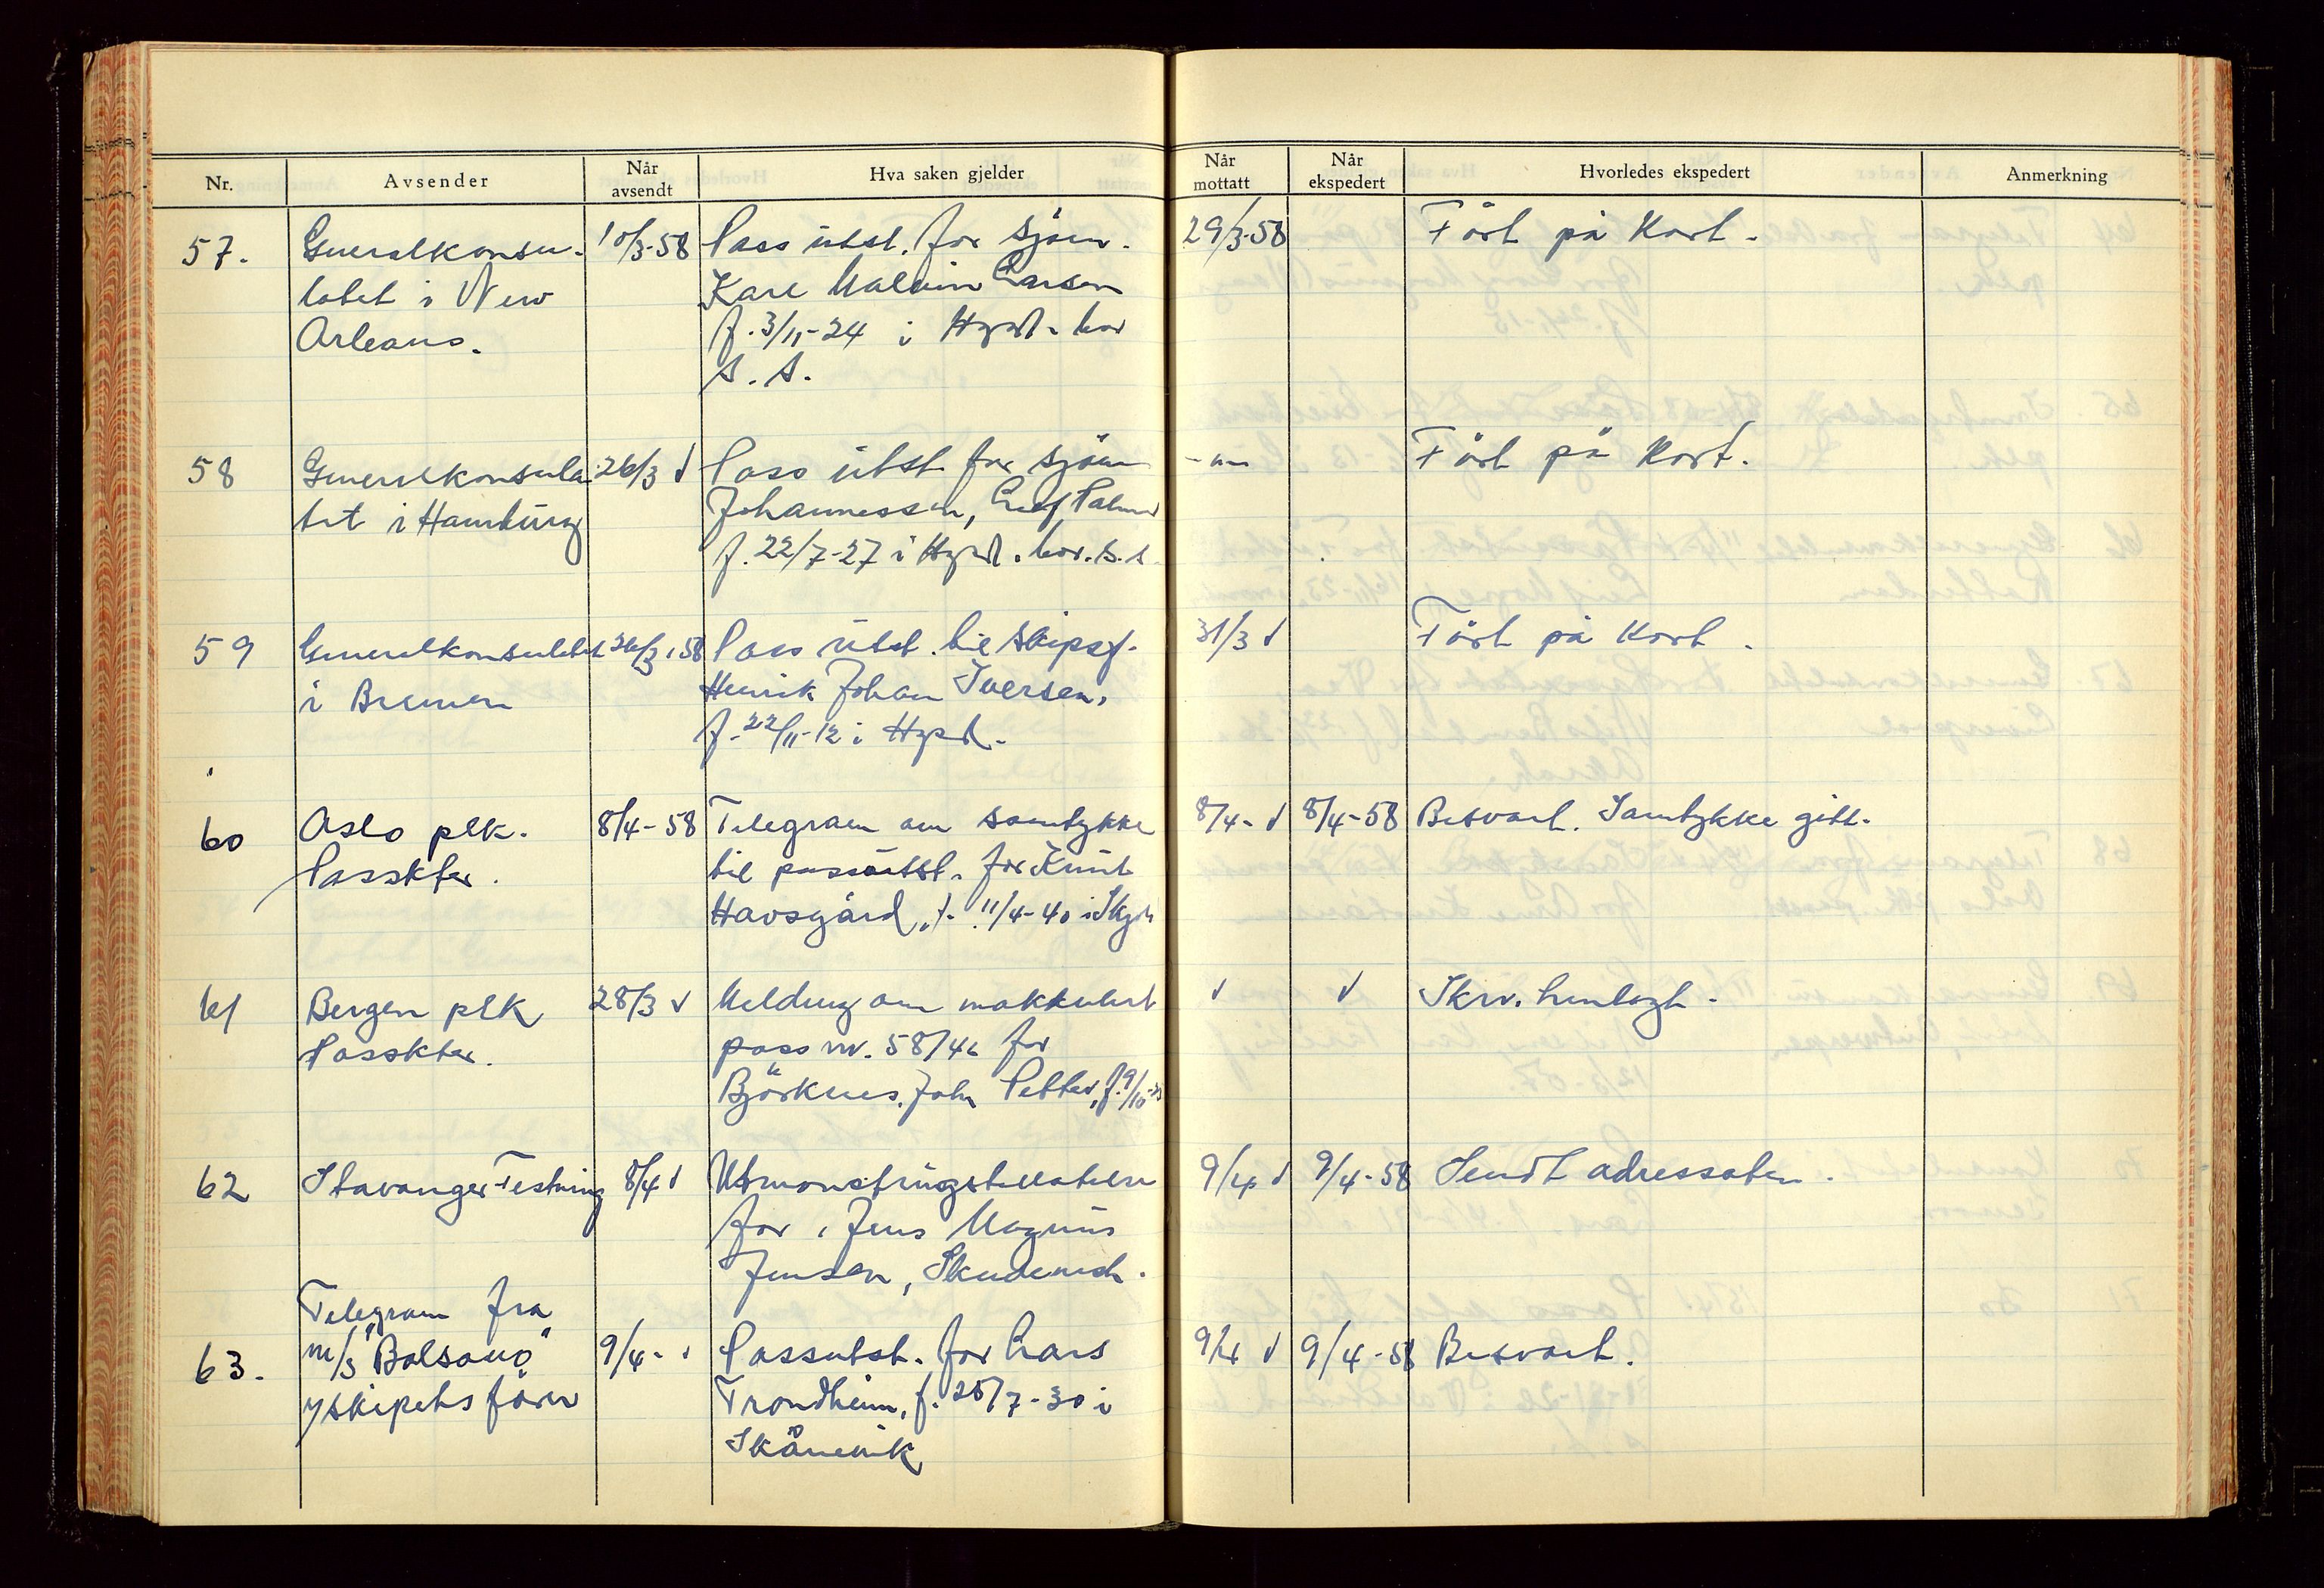 Nr.
Avsender
Når avsendt
Hva saken gjelder
Når mottatt
Når ekspedert
Hvorledes ekspedert
Anmerkning
57.
Generalkonsu-
latet i New
Orleans.
10/3-58
Pass utst. for sjöm.
Kare Malvin Larsen
f. 3/11-24 i Hgsd. bor
s.s.
29/3-58
Fört på Kort.
58
Generalkonsula-
tet i Hamburg
26/3 √
Pass utst for sjöm
Johannessen, Leif Palmer
f. 22/7-27 i Hgsd. bor. s.s.
Fört på Kort.
59
Generalkonsulatet
i Bremen
26/3.58
Pass utst. til skipsf.
Henrik Johan Iversen,
f. 22/11-12 i Hgsd.
31/3 √
Fört på Kort.
60
Oslo plk.
Passkter.
8/4-58
Telegram om samtykke
til passutst. for Knut
Havsgård, f. 11/4-40 i Skjold
8/4- √
8/4-58
Besvart. Samtykke gitt.
61
Bergen plk
Passkter.
28/3 √
Melding om makkulert
pass nr. 58/46 for
Björknes, John Petter, f. 9/10-
√
√
Skrv. henlagt.
62
Stavanger Festning
8/4 √
Utmönstringstillatelse
for Jens Magnus
Jensen, Skudenesh.
9/4 √
9/4-58
Sendt adressaten.
63.
Telegram fra
m/s "Balsano"
v/skipets förer
9/4-
Passutst. for Lars
Trondheim, f. 25/7-30 i
Skånevik
9/4 √
9/4-58
Besvart.